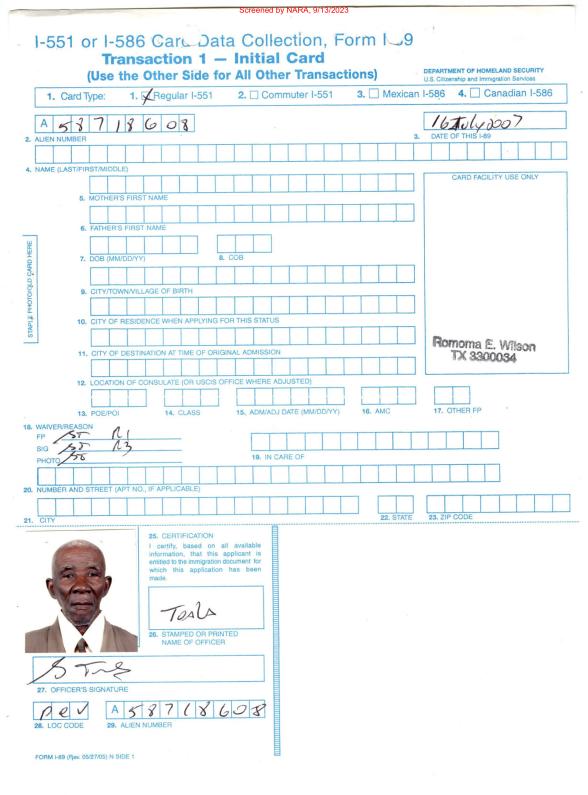 Screened by NARA, 9/13/2023
I-551 or I-586 Card Data Collection, Form I-89
Transaction 1 — Initial Card
(Use the Other Side for All Other Transactions)
DEPARTMENT OF HOMELAND SECURITY
U.S. Citizenship and Immigration Services
1. Card Type: 1. Regular I-551 2. Commuter I-551 3. Mexican I-586 4. Canadian I-586
A 58718608 16 July 2007
2. ALIEN NUMBER 3. DATE OF THIS I-89
4. NAME (LAST/FIRST/MIDDLE) CARD FACILITY USE ONLY
5. MOTHER'S FIRST NAME
6. FATHER'S FIRST NAME
STAPLE PHOTO/OLD CARD HERE
7. DOB (MM/DD/YY) 8. COB
9. CITY/TOWN/VILLAGE OF BIRTH
10. CITY OF RESIDENCE WHEN APPLYING FOR THIS STATUS
Romoma E. Wilson
TX 3300034
11. CITY OF DESTINATION AT TIME OF ORIGINAL ADMISSION
12. LOCATION OF CONSULATE (OR USCIS OFFICE WHERE ADJUSTED)
13. POE/POI 14. CLASS 15. ADM/ADJ DATE (MM/DD/YY) 16. AMC 17. OTHER FP
18. WAIVER/REASON
FP R1
SIG R3
PHOTO
19. IN CARE OF
20. NUMBER AND STREET (APT NO., IF APPLICABLE)
21. CITY 22. STATE 23. ZIP CODE
25. CERTIFICATION
I certify, based on all available
information, that this applicant is
entitled to the immigration document for
which this application has been
made.
26. STAMPED OR PRINTED
NAME OF OFFICER
27. OFFICER'S SIGNATURE
A 58718608
28. LOC CODE 29. ALIEN NUMBER
FORM I-89 (Rev. 05/27/05) N SIDE 1